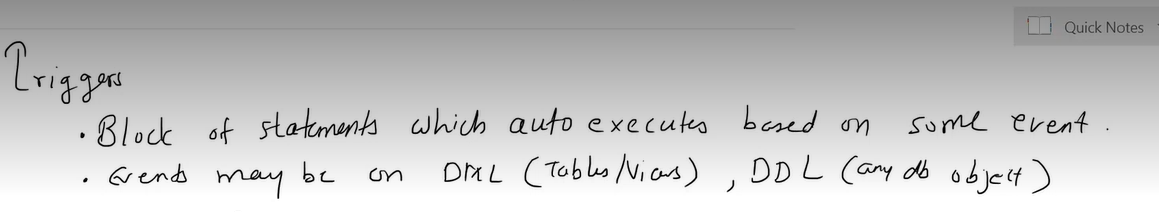 Quick Notes
Triggers
• Block of statements which auto executes based on some event.
• Events may be on DML (Tables/Views), DDL (any db object)